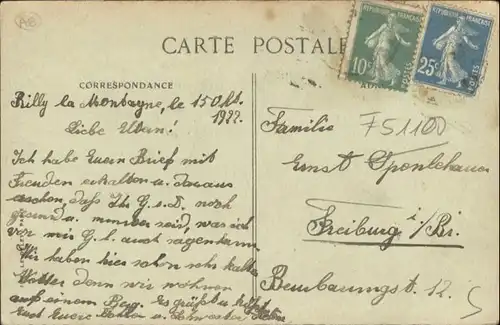 CARTE POSTALE
REPUBLIQUE FRANÇAISE
10c POSTES
REPUBLIQUE FRANÇAISE
25c POSTES
CORRESPONDANCE
Rilly la Montagne, le 15 Okt.
1922.
Liebe Eltern!
Ich habe Euern Brief mit
Freuden erhalten u. daraus
ersehen, daß Ihr G. s. D. noch
gesund u. munter seid, was ich
von mir G. l. auch sagen kann.
Wir haben hier schon sehr kaltes
Wetter denn wir wohnen
auf einem Berg. Es grüßt
Euch Euere Sohn u. Schwester
Familie
F51100
Ernst
Freiburg i/Br.
12